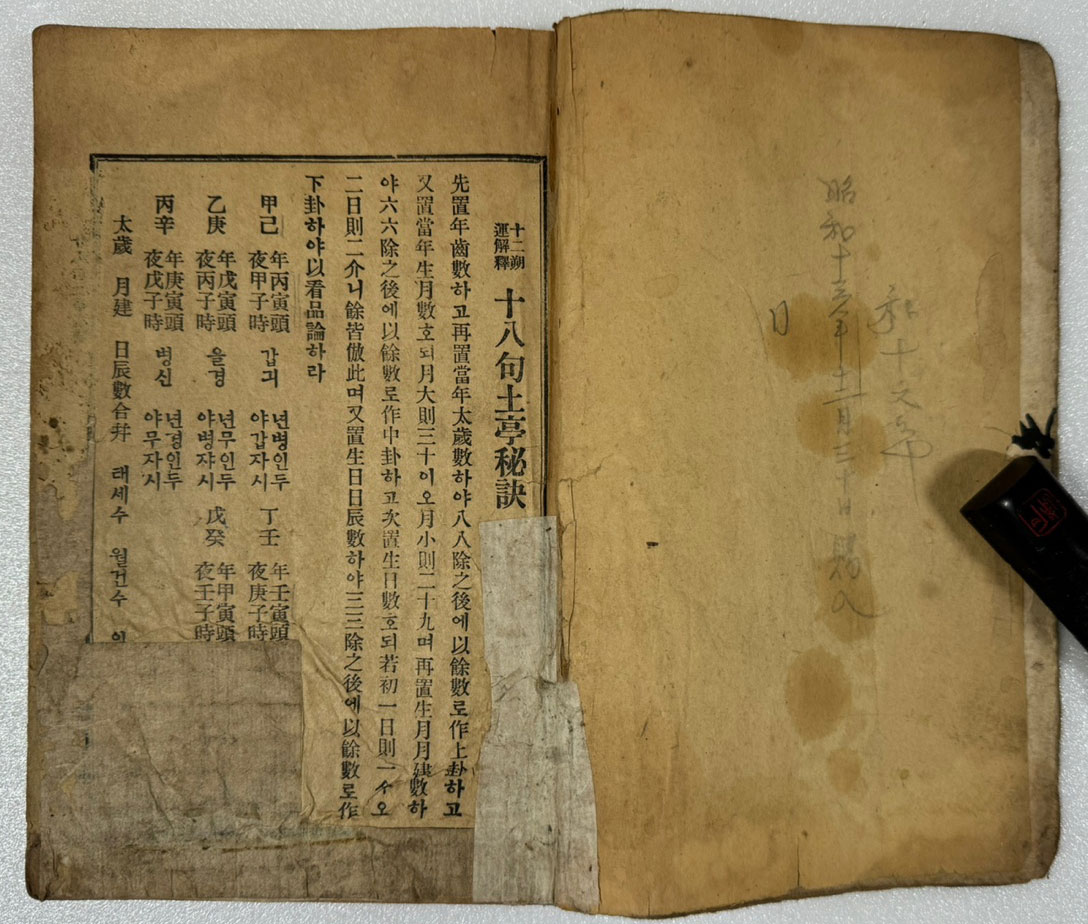 昭和十年十二月三十日
十二朔
運解釋
十八句土亭秘訣
先置年齒數하고再置當年太歲數하야八八除之後에以餘數로作上卦하고
又置當年生月數호되月大則三十이오月小則二十九며再置生月月建數하
야六六除之後에以餘數로作中卦하고次置生日數호되若初一日則一々오
二日則二介니餘皆倣此며又置生日日辰數하야三三除之後에以餘數로作
下卦하야以看品論하라
甲己 年丙寅頭 夜甲子時 갑긔 년병인두 야갑자시 丁壬 年壬寅頭 夜庚子時
乙庚 年戊寅頭 夜丙子時 을경 년무인두 야병쟈시 戊癸 年甲寅頭 夜壬子時
丙辛 年庚寅頭 夜戊子時 병신 년경인두 야무자시
太歲 月建 日辰數合幷 태세수 월건수